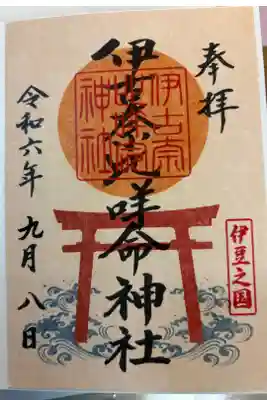 奉拝
伊豆之国
伊古奈比咩命神社
伊古奈
神社
令和六年九月八日